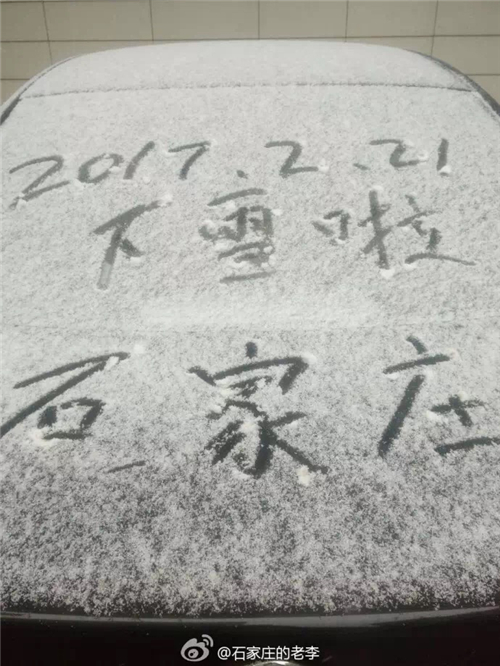 2017.2.21
下雪啦
石家庄
@石家庄的老李